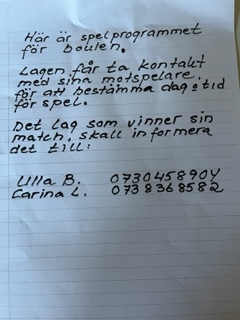 Här är spelprogrammet
för boulen.
Lagen får ta kontakt
med sina motspelare,
för att bestämma dag o tid
för spel.
Det lag som vinner sin
match, skall informera
det till:
Ulla B. 0730458904
Carina L. 0738368582